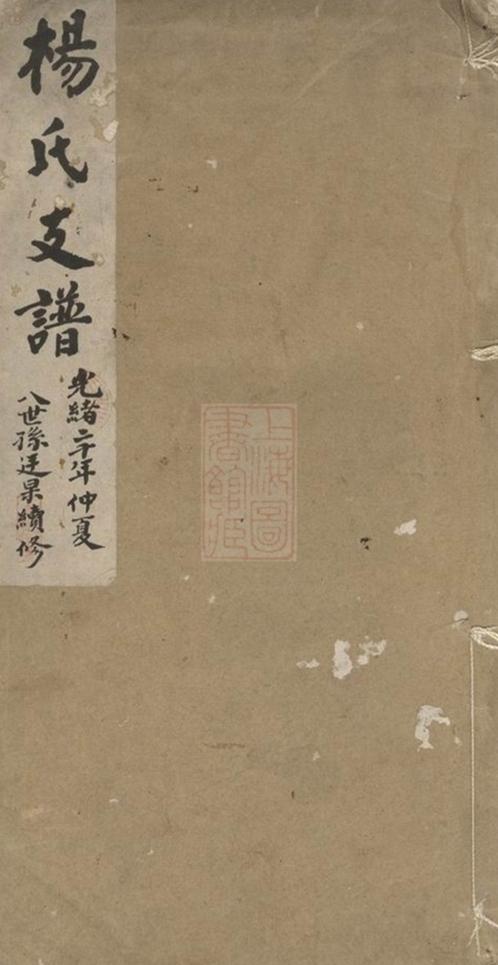 楊氏支譜
光緒二十年仲夏
八世孫廷杲續修
上海圖
書館臧